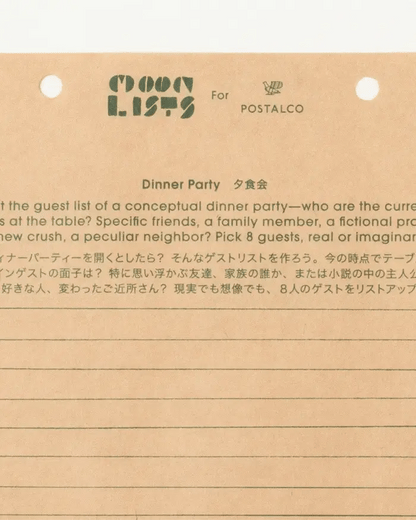 MOON LISTS For POSTALCO
Dinner Party 夕食会
t the guest list of a conceptual dinner party—who are the curre
s at the table? Specific friends, a family member, a fictional pro
new crush, a peculiar neighbor? Pick 8 guests, real or imaginar
ィナーパーティーを開くとしたら？ そんなゲストリストを作ろう。今の時点でテーブ
インゲストの面子は？ 特に思い浮かぶ友達、家族の誰か、または小説の中の主人公
好きな人、変わったご近所さん？ 現実でも想像でも、8人のゲストをリストアップ